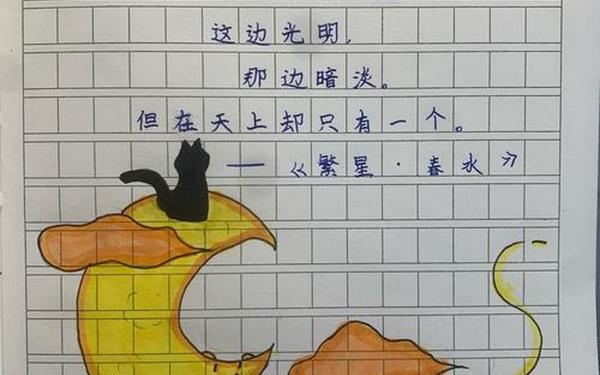 这边光明,
那边暗淡。
但在天上却只有一个。
——《繁星·春水》